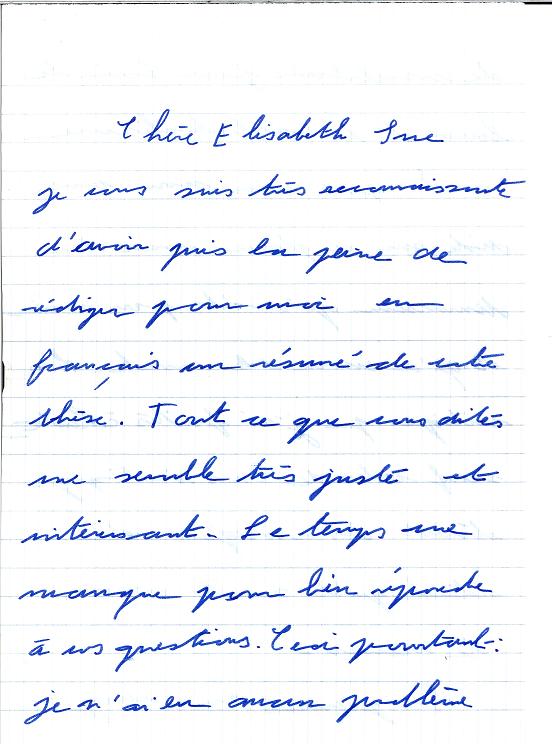 Chère Elisabeth
je vous suis très reconnaissante
d'avoir pris la peine de
rédiger pour moi en
français un résumé de votre
thèse. Tout ce que vous dites
me semble très juste et
intéressant. Le temps me
manque pour bien répondre
à vos questions. Ceci pourtant :
je n'ai eu aucun problème